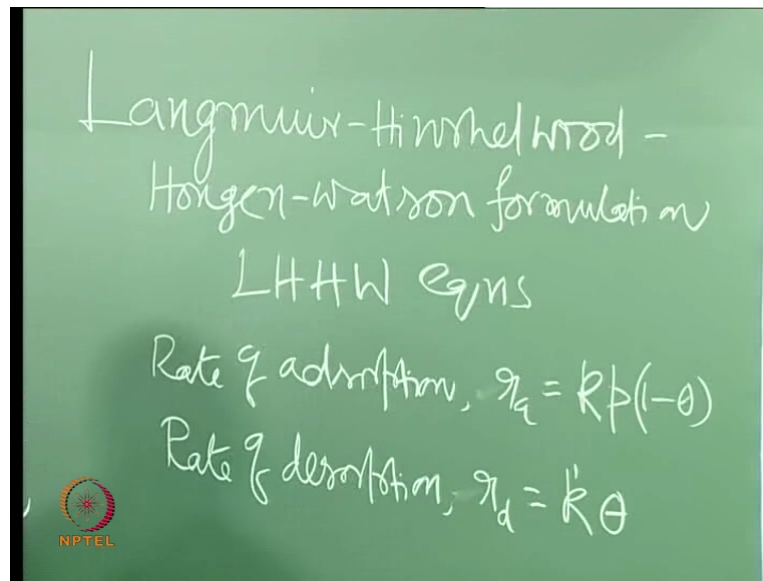 Langmuir-Hinshelwood-
Hougen-Watson formulation
LHHW eqns
Rate of adsorption, r_a = kp(1-θ)
Rate of desorption, r_d = k'θ
NPTEL